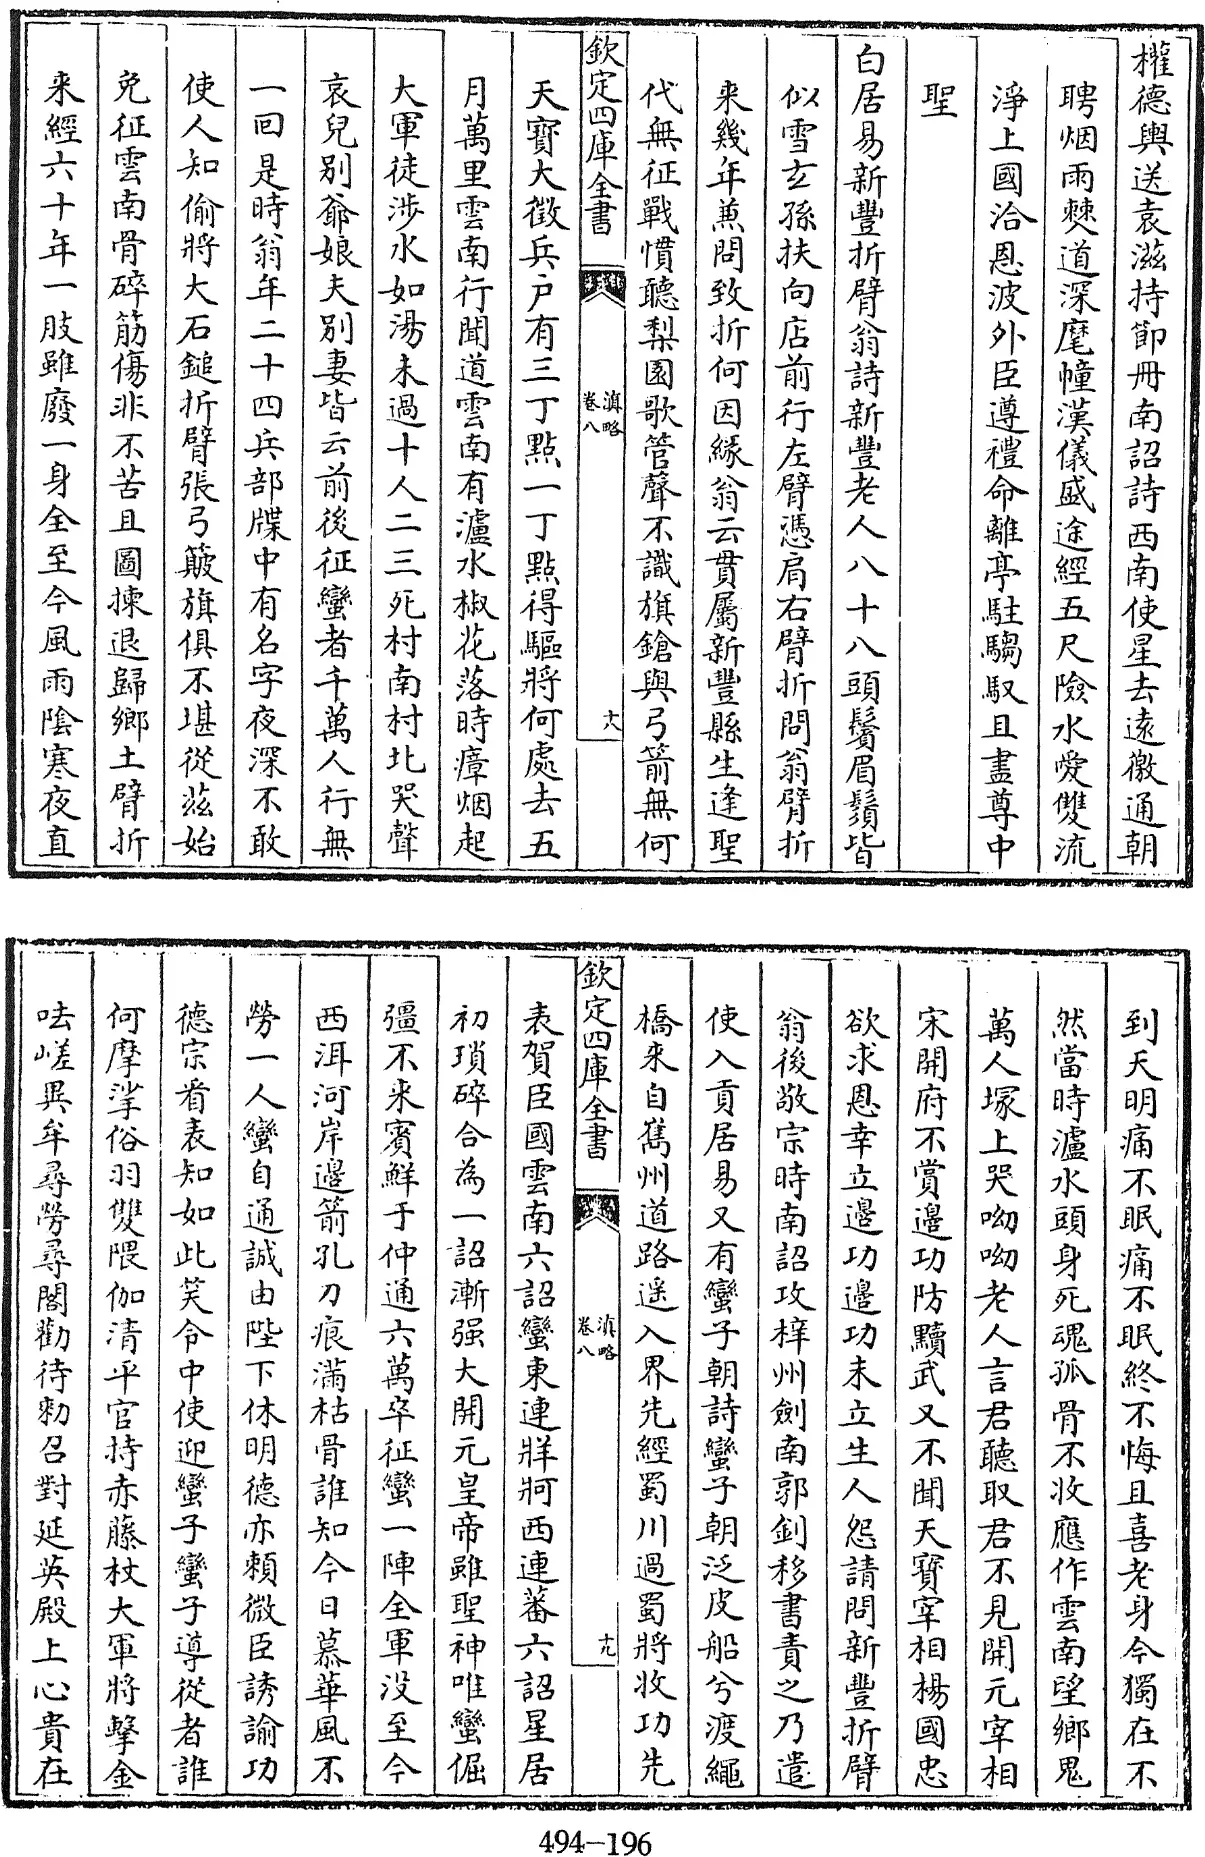 權德輿送袁滋持節冊南詔詩西南使星去遠徼通朝
聘烟雨僰道深麾幢漢儀盛途經五尺險水愛雙流
淨上國洽恩波外臣遵禮命離亭駐騶馭且盡尊中
聖
白居易新豐折臂翁詩新豐老人八十八頭鬢眉鬚皆
似雪玄孫扶向店前行左臂憑肩右臂折問翁臂折
來幾年兼問致折何因緣翁云貫屬新豐縣生逢聖
代無征戰慣聽梨園歌管聲不識旗鎗與弓箭無何
欽定四庫全書
滇略
卷八
十六
天寶大徵兵戶有三丁點一丁點得驅將何處去五
月萬里雲南行聞道雲南有瀘水椒花落時瘴烟起
大軍徒涉水如湯未過十人二三死村南村北哭聲
哀兒別爺娘夫別妻皆云前後征蠻者千萬人行無
一囘是時翁年二十四兵部牒中有名字夜深不敢
使人知偷將大石鎚折臂張弓簸旗俱不堪從茲始
免征雲南骨碎筋傷非不苦且圖揀退歸鄉土臂折
來經六十年一肢雖廢一身全至今風雨陰寒夜直
到天明痛不眠痛不眠終不悔且喜老身今獨在不
然當時瀘水頭身死魂孤骨不收應作雲南望鄉鬼
萬人塚上哭呦呦老人言君聽取君不見開元宰相
宋開府不賞邊功防黷武又不聞天寶宰相楊國忠
欲求恩幸立邊功邊功未立生人怨請問新豐折臂
翁後敬宗時南詔攻梓州劍南郭釗移書責之乃遣
使入貢居易又有蠻子朝詩蠻子朝泛皮船兮渡繩
橋來自嶲州道路遥入界先經蜀川過蜀將收功先
欽定四庫全書
滇略
卷八
十九
表賀臣國雲南六詔蠻東連牂牁西連蕃六詔星居
初瑣碎合為一詔漸强大開元皇帝雖聖神唯蠻倔
彊不來賓鮮于仲通六萬卒征蠻一陣全軍没至今
西洱河岸邊箭孔刀痕滿枯骨誰知今日慕華風不
勞一人蠻自通誠由陛下休明德亦頼微臣誘諭功
德宗看表知如此笑令中使迎蠻子蠻子導從者誰
何摩挲俗羽雙隈伽清平官持赤藤杖大軍將擊金
呿嵯異牟尋勞尋閣勸待勑召對延英殿上心貴在
494-196